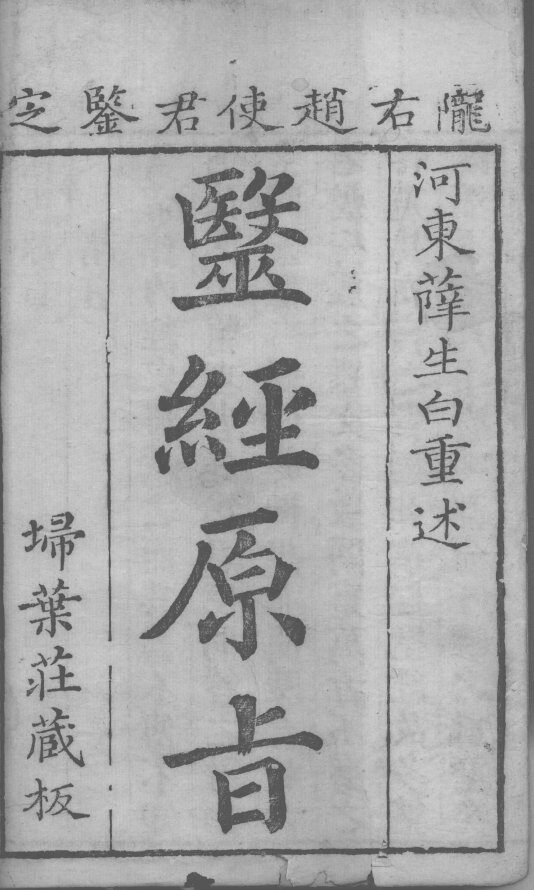 隴右趙使君鑒定
河東薛生白重述
毉經原旨
埽葉莊蔵板